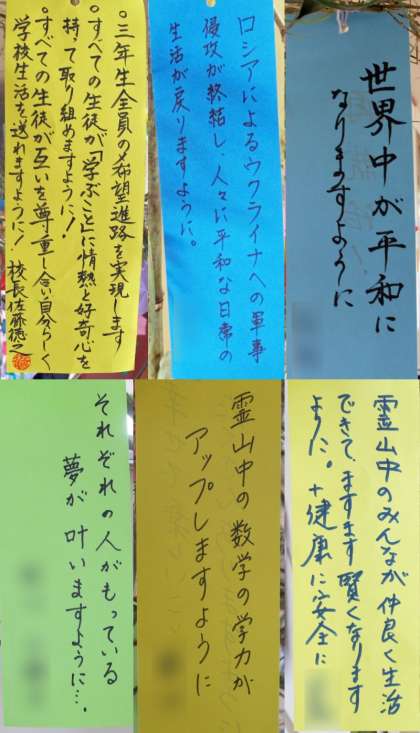 ○三年生全員の希望進路を実現します
○すべての生徒が「学ぶこと」に情熱と好奇心を
持って取り組めますように！
○すべての生徒が互いを尊重し合い自分らしく
学校生活を送れますように！ 校長佐藤徳之
ロシアによるウクライナへの軍事
侵攻が終結し、人々に平和な日常の
生活が戻りますように。
世界中が平和に
なりますように
それぞれの人がもっている
夢が叶いますように…。
霊山中の数学の学力が
アップしますように
霊山中のみんなが仲良く生活
できて、ますます賢くなります
ように。＋健康に安全に